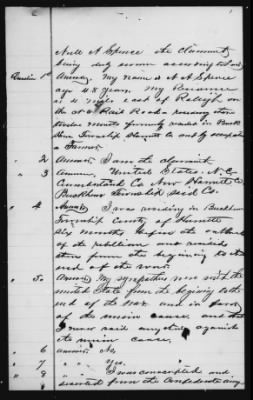 Null N Spence the claimant
being duly sworn according to law
Question 1st Answer My name is N N Spence
age 48 years. My Residence
is 4 miles east of Raleigh on
the Rail Road
twelve months formerly resided in Buckhorn
Township Harnett Co and by occupation
a Farmer.
" 2 Answer I am the claimant
" 3 Answer, United States, N.C
Cumberland Co Now Harnett Co
Buckhorn Township said Co.
" 4 Answer I was residing in Buckhorn
Township County of Harnett
six months before the outbreak
of the rebellion and resided
there from the beginning to the
end of the war.
" 5 Answer My sympathies was with the
united State from the beginning to the
end of the war and in favor
of the union cause, and that
I never said anything against
the union cause.
" 6 answer No,
" 7 " " Yes,
" 8 " " I was conscripted and
deserted from the Confederate army